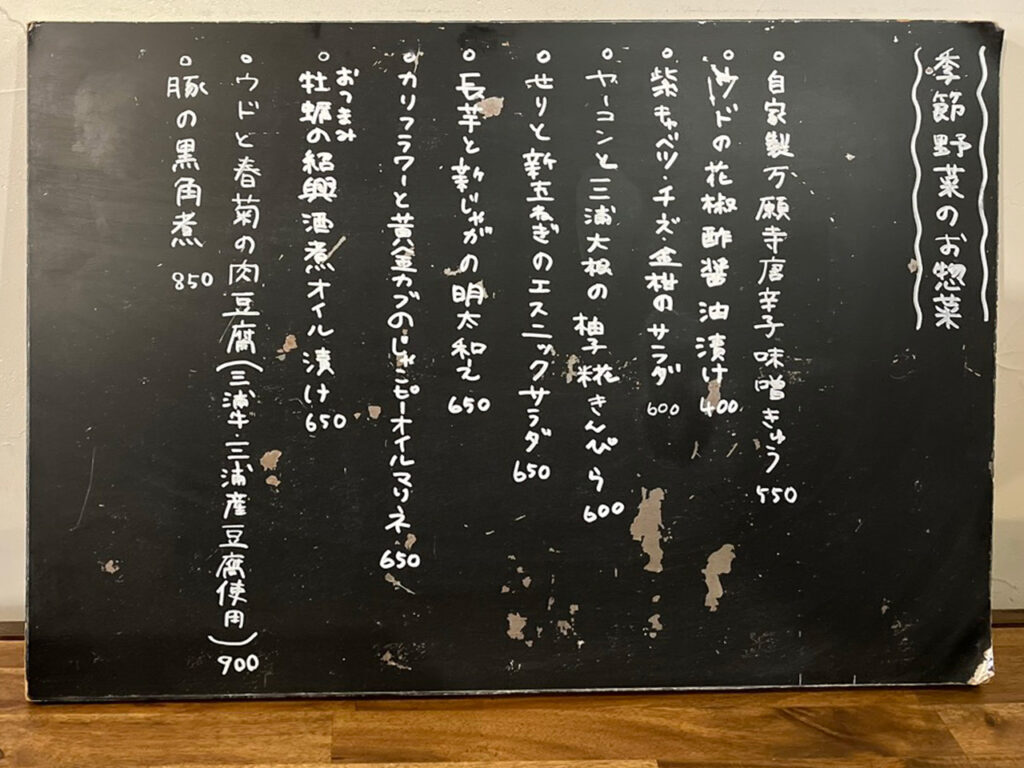 季節野菜のお惣菜
・自家製万願寺唐辛子味噌きゅう 550
・ウドの花椒酢醤油漬け 400
・紫キャベツ・チーズ・金柑のサラダ 600
・ヤーコンと三浦大根の柚子糀きんぴら 600
・せりと新玉ねぎのエスニックサラダ 650
・長芋と新じゃがの明太和え 650
・カリフラワーと黄金カブのじゃこピーオイルマリネ 650
・おつまみ牡蠣の紹興酒煮オイル漬け 650
・ウドと春菊の肉豆腐(三浦牛・三浦産豆腐使用) 900
・豚の黒角煮 850